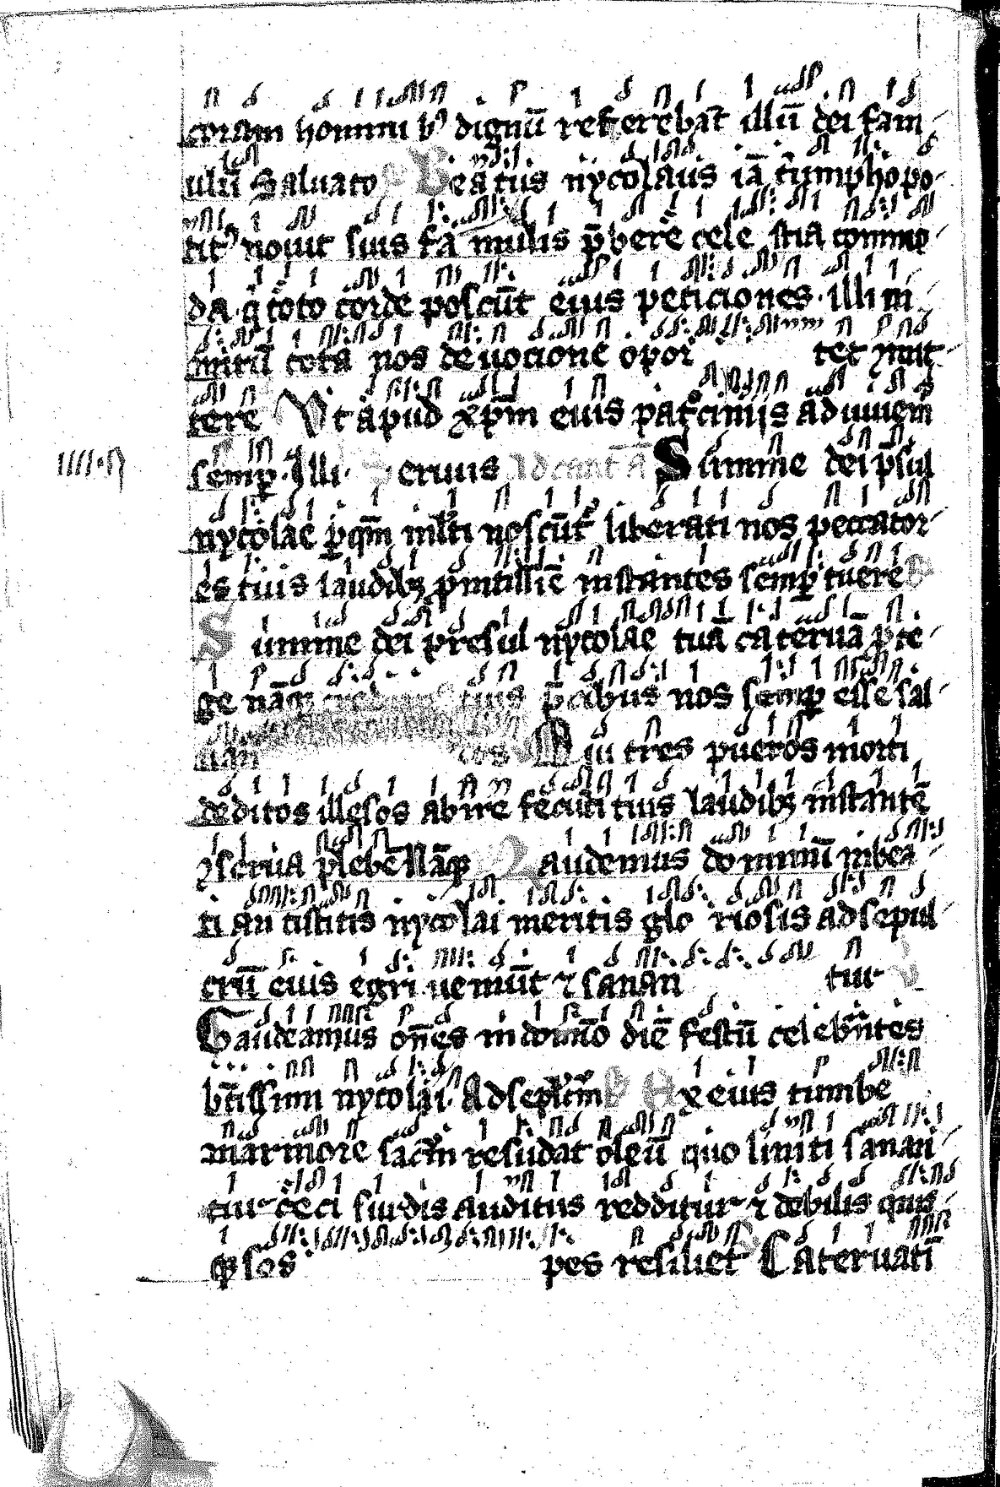 coram homini b⁹ dignū referebat illū dei fam
ulū Saluato Beatus nycolaus iā t̄umpho po
tit⁹ nouit suis famulis p̄bere cele stia commo
da q̄ toto corde poscūt eius peticiones illi ni
mirū tota nos deuocione opor tet ɔmit
tere Vt apud xp̄m eius pat̊cinijs adiuuem
semꝑ Illi eruus Ad cant Summe dei p̄sul
nycolae ꝑ quē ml̄ti noscūt liberati nos peccator
es tuis laudibꝫ instantes semꝑ tuere
Summe dei presul nycolae tuā cateruā ꝓte
ge nāqꝫ tuis p̄cibus nos semꝑ esse sal
uan Qui tres pueros morti
deditos illesos abire fecisti tuis laudibꝫ instantē
ɔserua plebē Nāqꝫ audemus dominū in bea
ti antistitis nycolai meritis glo riosis ad sepul
crū eius egri ueniūt ⁊ sanan tur
Gaudeamus on̄es in domino diē festū celebrn̄tes
bt̄issimi nycolai Ad sepl̄crm Ex eius tumbe
marmore sacrm̄ resudat oleū quo liniti sanan
tur ceci surdis auditus redditur ⁊ debilis quis
qꝫ sos pes resiliet Cateruatī
IIII·R